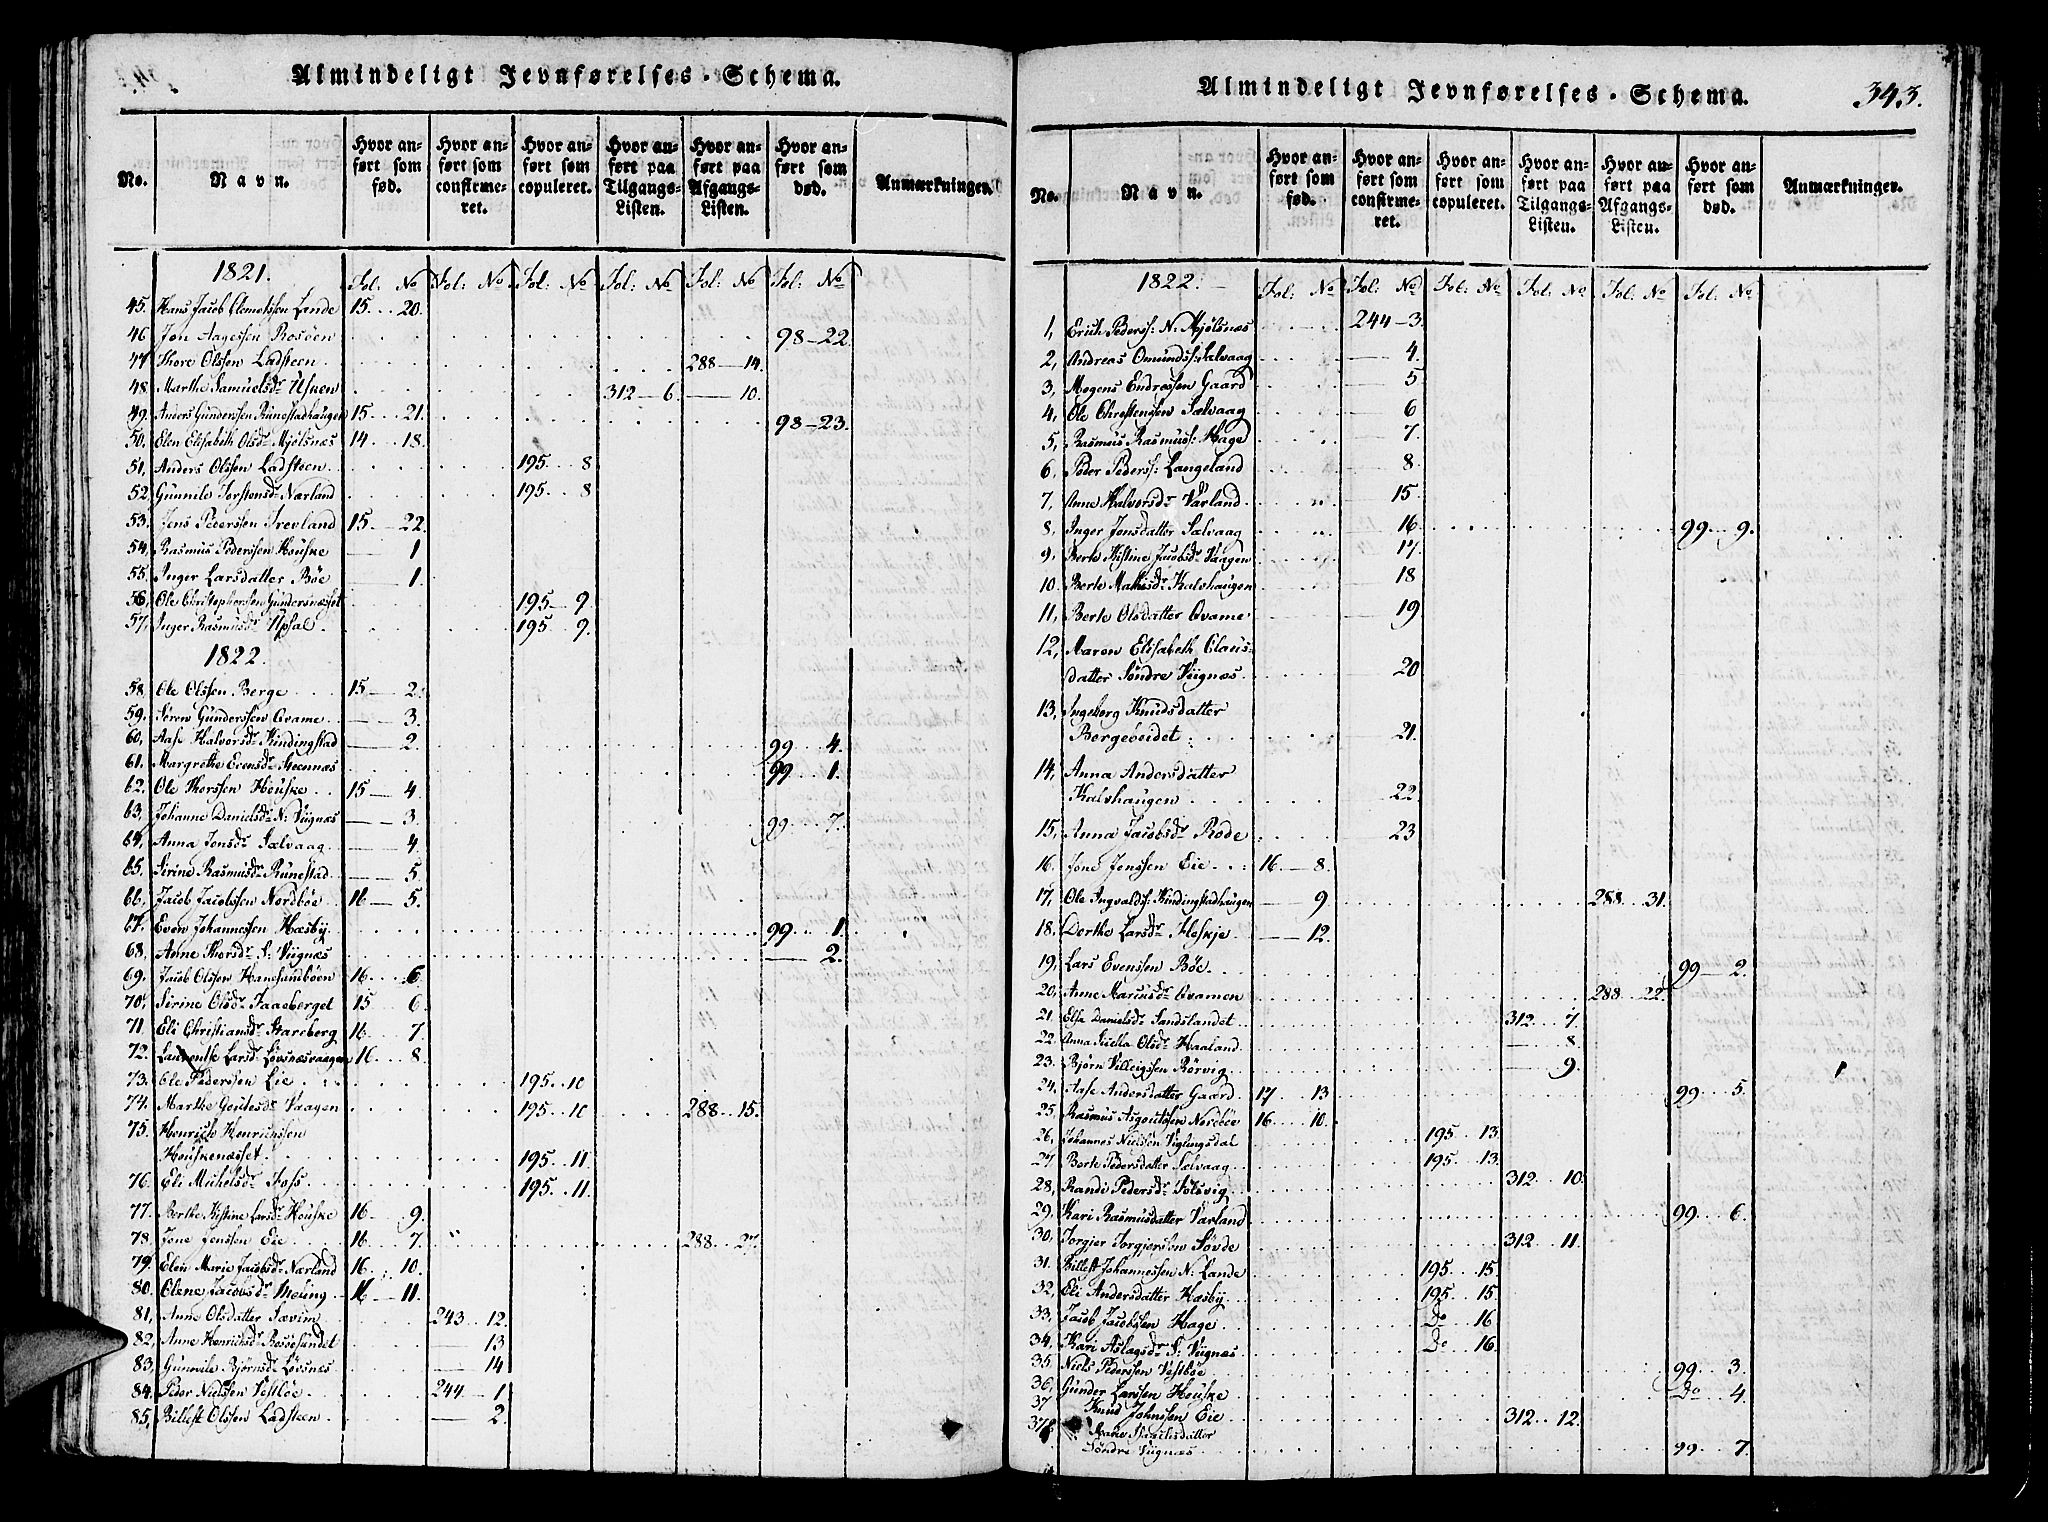 Almindeligt Jevnførelses-Schema.
No. Navn. Hvor anført som fød. Hvor anført som confirmeret. Hvor anført som copuleret. Hvor anført paa Tilgangs-Listen. Hvor anført paa Afgangs-Listen. Hvor anført som død. Anmærkninger.
1821. Fol: No Fol: No Fol: No Fol: No Fol: No Fol: No
45. Hans Jacob Clemetssen Lande 15 20.
46 Jon Aagessen Rosøen 98-22.
47 Thore Olssen Ladsteen 288-14.
48. Marthe Samuelsdr Usken 312-6. — 10.
49. Anders Gundersen Runestadhaugen 15 21. 98-23.
50. Elen Elisabeth Olsdr Mjølsnæs 14 18.
51. Anders Olssen Ladsteen 195. 8
52. Gunnile Torstensdr Nærland 195. 8
53. Jens Pederssen Trevland 15-22.
54. Rasmus Pederssen Houske — 1
55. Inger Larsdatter Bøe — 1.
56. Ole Christophersen Gundersnæsset 195-9.
57. Inger Rasmusdr Opsal 195 9.
1822.
58. Ole Olssen Berge 15-2.
59. Søren Gunderssen Qvame — 3.
60. Aase Halvorsdr Kindingstad — 2. 99 4.
61. Margrethe Evensdr Steennæs 99 1.
62. Ole Thorssen Houske 15-4.
63. Johanne Danielsdr N: Viignæs — 3. 99 7.
64. Anna Jensdr Sælvaag — 4.
65. Sirine Rasmusdr Runestad — 5
66. Jacob Jacobssen Nordbøe 16-5.
67. Even Johannessen Hæsby 99 1.
68. Anne Thorsdr S: Viignæs — 2.
69. Jacob Olssen Hanesundbøen 16 6.
70. Sirine Olsdr Faaeberget 15 6.
71. Eli Christiansdr Bareberg 16 7.
72. Laurentse Larsdr Løvsnæsvaagen 16 8.
73. Ole Pederssen Eie 195. 10
74. Marthe Goutesdr Vaagen 195. 10 288 15.
75. Henrick Henrichssen
Houskenæsset. 195. 11.
76. Eli Michelsdr Foss 195. 11.
77. Berthe Kistine Larsdr Houske 16 9.
78. Jone Jenssen Eie 16 7. 288 27.
79. Elen Marie Jacobsdr Nærland 16 10.
80. Olene Jacobsdr Meling 16-11.
81. Anne Olsdatter Sævim 243 12.
82. Anne Henricksdr Rossesundet — 13
83. Gunevile Bjørnsdr Løvsnæs — 14
84. Peder Nielssen Vestbøe 244-1
85. Billest Olssen Ladsteen — 2.
Almindeligt Jevnførelses-Schema. 343.
No. Navn. Hvor anført som fød. Hvor anført som confirmeret. Hvor anført som copuleret. Hvor anført paa Tilgangs-Listen. Hvor anført paa Afgangs-Listen. Hvor anført som død. Anmærkninger.
1822. Fol: No Fol: No Fol: No Fol: No Fol: No Fol: No
1, Erich Pederss: N: Mjølsnæs 244-3.
2, Andreas Omundss: Sælvaag — 4.
3, Mogens Endressen Gaard — 5
4, Ole Christensen Sælvaag — 6
5, Rasmus Rasmuss: Hage — 7.
6. Peder Pederss: Langeland — 8.
7. Anne Halvorsdr Varland — 15
8, Inger Jensdatter Sælvaag — 16 99 9.
9. Berte Kistine Jacobsdr Vaagen — 17.
10. Berte Mathisdr Kalvhaugen — 18
11, Berte Olsdatter Qvame — 19
12, Maren Elisabeth Claus-
datter Søndre Viignæs — 20
13, Ingeborg Knudsdatter
Bergeveidet — 21.
14, Anna Andersdatter
Kalvhaugen — 22
15, Anna Jacobsdr Rode — 23
16. Jone Jenssen Eie 16-8.
17, Ole Ingvaldss: Kindingstadhaugen — 9 288 31.
18. Dorthe Larsdr Fleskje — 12.
19, Lars Evenssen Bøe 99-2.
20, Anne Mariusdr Qvamen 288 22.
21. Elsa Danielsdr Sandslandet 312 7.
22. Anna Olsdr Haaland — 8
23. Bjørn Villeigssen Rørvig — 9.
24. Aase Andersdatter Gaard 17. 13 99 5.
25. Rasmus Asgoutssen Nordbøe 16 10.
26. Johannes Nielssen Viglingsdal 195 13.
27. Berte Pedersdatter Sælvaag 195 13.
28, Randi Pedersdr Solsvig 312 10.
29, Kari Rasmusdatter Varland 99 6.
30, Torgier Torgierssen Søvde 312 11.
31. Billest Johannessen N: Lande 195 15.
32, Eli Andersdatter Hæsby 195 15.
33, Jacob Jacobssen Hage Do 16
34, Kari Aslagsdr S: Viignæs Do 16.
35. Niels Pederssen Vestbøe 99 3.
36, Gunder Larssen Houske Do 4.
37 Knud Johnssen Eie 312 12.
37b Isaachsdatter
Søndre Viignæs 99 7.